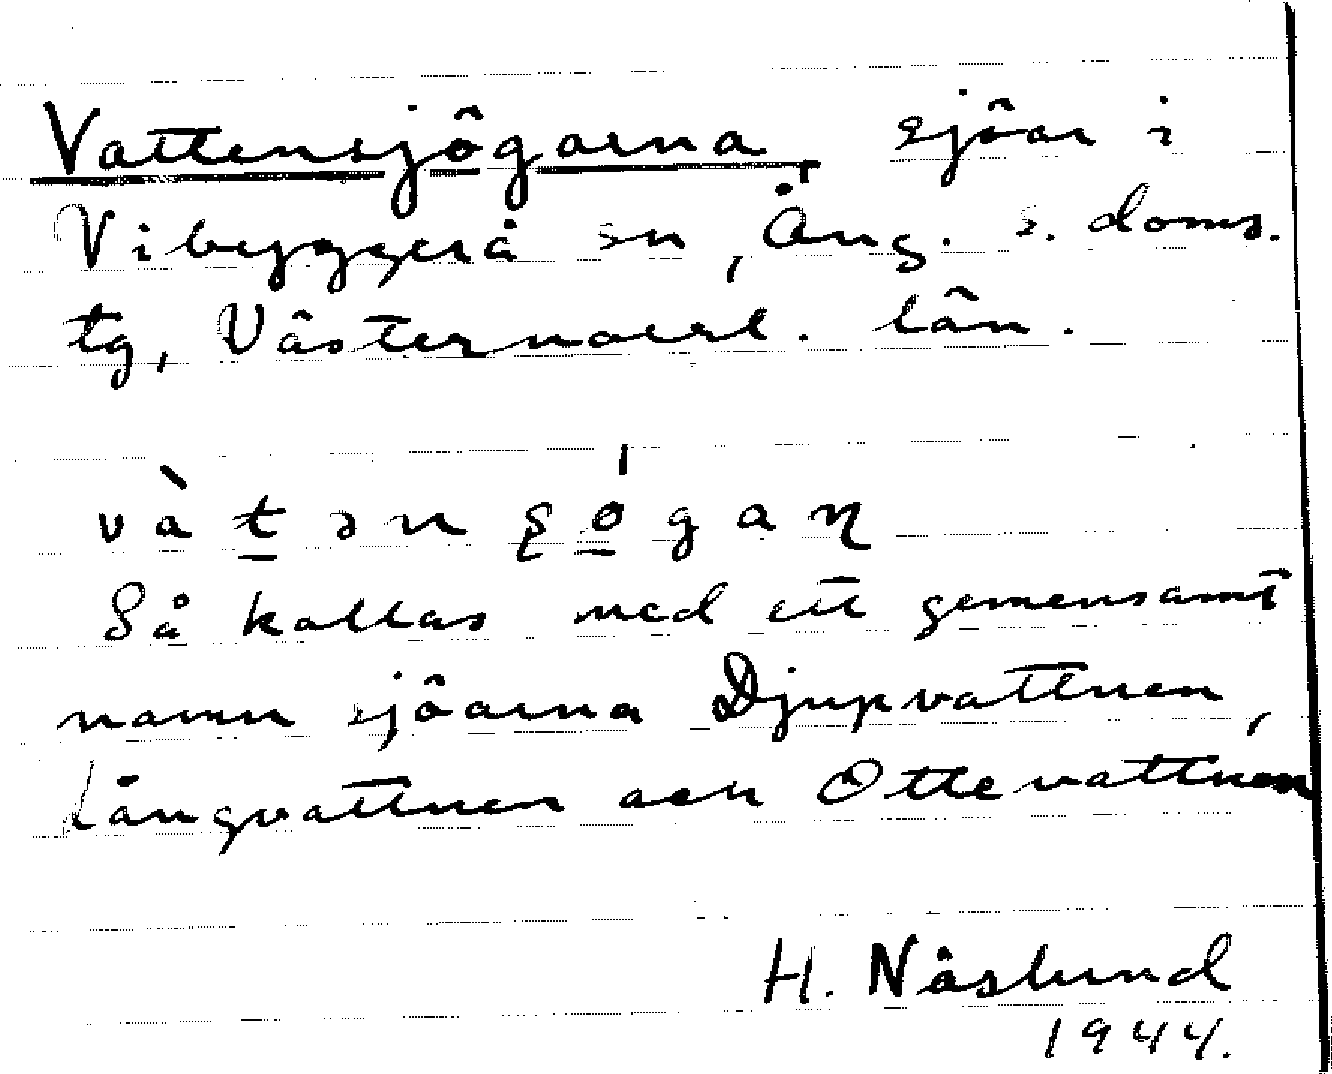 Vattensjögarna, sjöar i
Vibyggerå sn, Ång. s. doms.
tg, Västernorrl. län.
vàt̠ən ʂó̠gaɳ
Så kallas med ett gemensamt
namn sjöarna Djupvattnen,
Långvattnen och Ottevattnen
H. Näslund
1944.